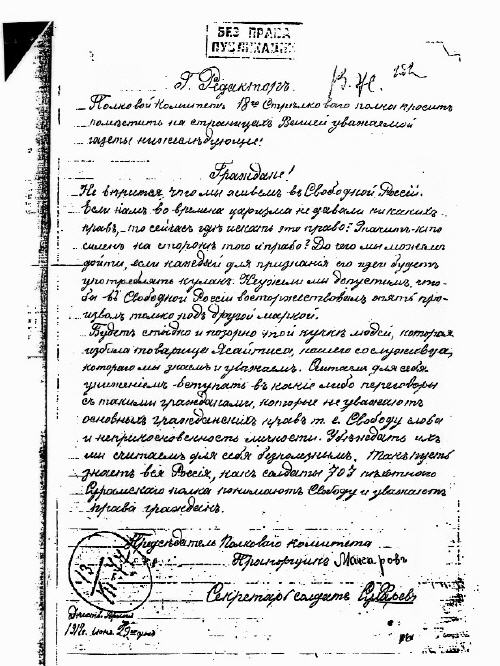 БЕЗ ПРАВА
ПУБЛИКАЦИИ
Г. Редакторъ.
Полковой Комитетъ 18го Стрѣлковаго полка просить
помѣстить на страницахъ Вашей уважаемой
газеты нижеслѣдующее:
Граждане!
Не вѣрится, что мы живемъ въ Свободной Россіи.
Если намъ во времена царизма не давали никакихъ
правъ, — то сейчасъ гдѣ искать эти права? Значитъ кто
силенъ на сторонѣ того и право? До чего мы можемъ
дойти, если каждый для признанія его идеи будетъ
употреблять кулакъ. Неужели мы допустимъ, что-
бы въ Свободной Россіи восторжествовалъ опять про-
изволъ только подъ другой маркой.
Будетъ стыдно и позорно этой кучкѣ людей, которая
избила товарища, нашего сослуживца,
котораго мы знаемъ и уважаемъ. Считаемъ для себя
униженіемъ вступать въ какіе либо переговоры
съ такими гражданами, которые не уважаютъ
основныхъ гражданскихъ правъ т. е. Свободу слова
и неприкосновенность личности. Убѣждать ихъ
мы считаемъ для себя безполезнымъ. Такъ пусть
знаетъ вся Россія, какъ солдаты 703 пѣхотного
Сурамскаго полка понимаютъ Свободу и уважаютъ
права гражданъ.
Предсѣдатель Полковаго Комитета
Прапорщикъ
Секретарь солдатъ